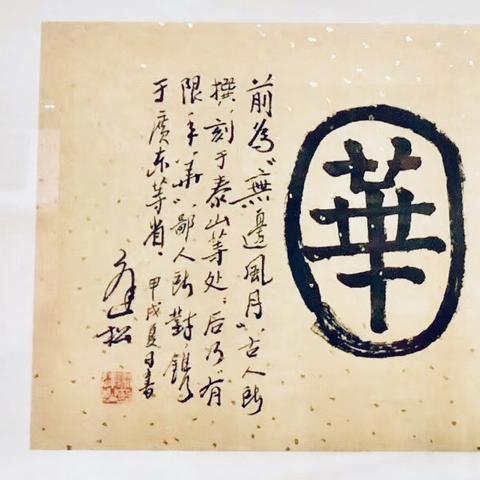 華
前為“無邊風月”，古人所
撰，刻于泰山等处；后乃“有
限年華”，鄙人所對，鐫
于廣东等省。甲戌夏日書
松